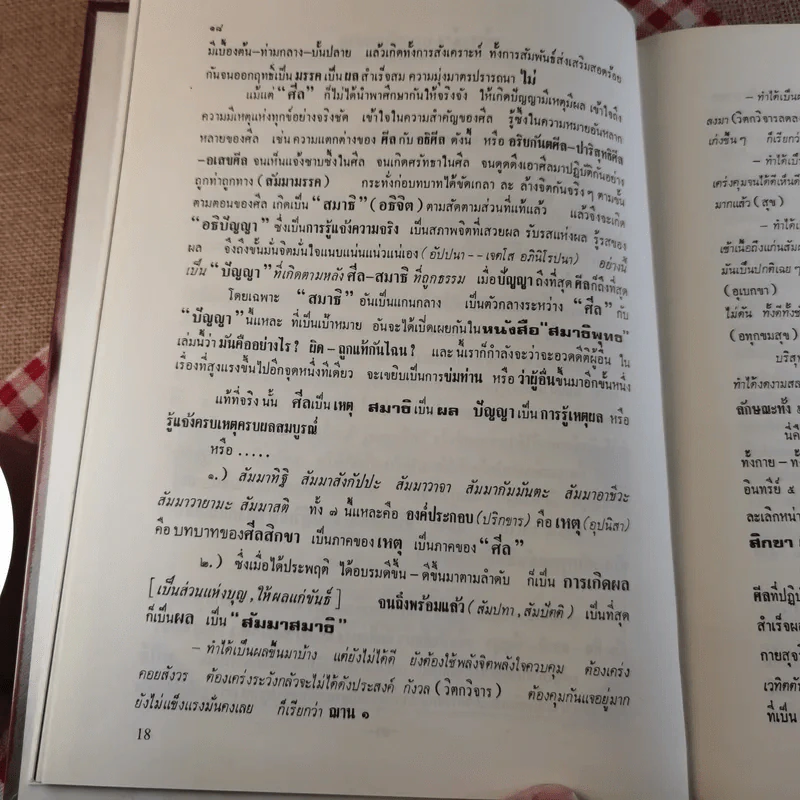 ๑๘
มีเบื้องต้น–ท่ามกลาง–บั้นปลาย แล้วเกิดทั้งการสังเคราะห์ ทั้งการสัมพันธ์ส่งเสริมสอดร้อย
กันจนออกฤทธิ์เป็น มรรค เป็น ผล สำเร็จสม ความมุ่งมาตรปรารถนา ไม่
แม้แต่ “ศีล” ก็ไม่ได้นำพาศึกษากันให้จริงจัง ให้เกิดปัญญามีเหตุมีผล เข้าใจถึง
ความมีเหตุแห่งทุกข์อย่างจริงชัด เข้าใจในความสำคัญของศีล รู้ซึ้งในความหมายอันหลาก
หลายของศีล เช่น ความแตกต่างของ ศีล กับ อธิศีล ดังนี้ หรือ อริยกันตศีล–ปาริสุทธิศีล
–อเสขศีล จนเห็นแจ้งซาบซึ้งในศีล จนเกิดศรัทธาในศีล จนดูดดึงเอาศีลมาปฏิบัติกันอย่าง
ถูกท่าถูกทาง (สัมมามรรค) กระทั่งก่อบทบาทได้ขัดเกลา ละ ล้างจิตกันจริงๆ ตามขั้น
ตามตอนของศีล เกิดเป็น “สมาธิ” (อธิจิต) ตามสัดตามส่วนที่แท้แล้ว แล้วจึงจะเกิด
“อธิปัญญา” ซึ่งเป็นการรู้แจ้งความจริง เป็นสภาพจิตที่เสวยผล รับรสแห่งผล รู้รสของ
ผล จึงถึงขั้นมั่นจิตมั่นใจแนบแน่นแน่วแน่เอง (อัปปนา -- เจตโส อภินิโรปนา) อย่างนี้
เป็น “ปัญญา” ที่เกิดตามหลัง ศีล–สมาธิ ที่ถูกธรรม เมื่อปัญญาถึงที่สุด ศีลก็ถึงที่สุด
โดยเฉพาะ “สมาธิ” อันเป็นแกนกลาง เป็นตัวกลางระหว่าง “ศีล” กับ
“ปัญญา” นี้แหละ ที่เป็นเป้าหมาย อันจะได้เปิดเผยกันในหนังสือ“สมาธิพุทธ”
เล่มนี้ว่า มันคืออย่างไร? ผิด–ถูกแท้กันไฉน? และนี้เราก็กำลังจะว่าจะอวดดีตีผู้อื่น ใน
เรื่องที่สูงแรงขึ้นไปอีกจุดหนึ่งทีเดียว จะเขยิบเป็นการข่มท่าน หรือว่าผู้อื่นขึ้นมาอีกขั้นหนึ่ง
แท้ที่จริงนั้น ศีลเป็นเหตุ สมาธิเป็นผล ปัญญาเป็นการรู้เหตุผล หรือ
รู้แจ้งครบเหตุครบผลสมบูรณ์
หรือ .....
๑.) สัมมาทิฐิ สัมมาสังกัปปะ สัมมาวาจา สัมมากัมมันตะ สัมมาอาชีวะ
สัมมาวายามะ สัมมาสติ ทั้ง ๗ นี้แหละคือ องค์ประกอบ (ปริกขาร) คือ เหตุ (อุปนิสา)
คือ บทบาทของศีลสิกขา เป็นภาคของเหตุ เป็นภาคของ “ศีล”
๒.) ซึ่งเมื่อได้ประพฤติ ได้อบรมดีขึ้น–ดีขึ้นมาตามลำดับ ก็เป็น การเกิดผล
[เป็นส่วนแห่งบุญ, ให้ผลแก่ขันธ์] จนถึงพร้อมแล้ว (สัมปทา, สัมปัตติ) เป็นที่สุด
ก็เป็นผล เป็น “สัมมาสมาธิ”
– ทำได้เป็นผลขึ้นมาบ้าง แต่ยังไม่ได้ดี ยังต้องใช้พลังจิตพลังใจควบคุม ต้องเคร่ง
คอยสังวร ต้องเคร่งระวังกลัวจะไม่ได้ดังประสงค์ กังวล (วิตกวิจาร) ต้องคุมกันแจอยู่มาก
ยังไม่แข็งแรงมั่นคงเลย ก็เรียกว่า ฌาน ๑
18
– ทำได้เป็น
ลงมา (วิตกวิจารลดลง
เก่งขึ้นๆ ก็เรียกว่า
– ทำได้เ
เคร่งคุมจนได้ดีเห็นดี
มากแล้ว (สุข)
– ทำได้เ
เข้าเนื้อถึงแก่นสัม
มันเป็นปกติเฉยๆ
(อุเบกขา)
ไม่ต้น ทั้งดีทั้งชั่
(อทุกขมสุข)
บริสุท
ทำได้งดงามสล
ลักษณะทั้ง
นี่คื
ทั้งกาย – ทั้
อินทรีย์ ๕
ละเลิกหน่า
สิกขา
ศีลที่ปฏิบั
สำเร็จผล
กายสุจริ
เวทิตตั
ที่เป็น